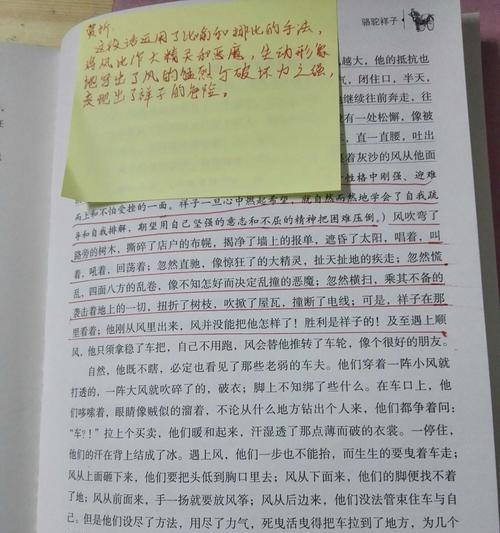 骆驼祥子
赏析:
这段话运用了比喻和排比的手法,
将风比作大精灵和恶魔,生动形象
地写出了风的猛烈与破坏力之强,
表现出了祥子的危险。
越大,他的抵抗也
气,闭住口,半天,
地继续往前奔走,往
有一处松懈,像被
,直一直腰,吐出
着灰沙的风从他面
性格中刚强、迎难
而上和不怕受挫的一面。祥子一旦心中燃起希望,就自然而然地学会了自我疏
导和自我排解,期望用自己坚强的意志和不屈的精神把困难压倒。)风吹弯了
路旁的树木,撕碎了店户的布幌,揭净了墙上的报单,遮昏了太阳,唱着,叫
着,吼着,回荡着;忽然直驰,像惊狂了的大精灵,扯天扯地的疾走;忽然慌
乱,四面八方的乱卷,像不知怎好而决定乱撞的恶魔;忽然横扫,乘其不备的
袭击着地上的一切,扭折了树枝,吹掀了屋瓦,撞断了电线;可是,祥子在那
里看着;他刚从风里出来,风并没能把他怎样了!胜利是祥子的!及至遇上顺
风,他只须拿稳了车把,自己不用跑,风会替他推转了车轮,像个很好的朋友。
自然,他既不瞎,必定也看见了那些老弱的车夫。他们穿着一阵小风就
打透的,一阵大风就吹碎了的,破衣;脚上不知绑了些什么。在车口上,他
们哆嗦着,眼睛像贼似的溜着,不论从什么地方钻出个人来,他们都争着问:
“车?!”拉上个买卖,他们暖和起来,汗湿透了那点薄而破的衣裳。一停住,
他们的汗在背上结成了冰。遇上风,他们一步也不能抬,而生生的要曳着车走;
风从上面砸下来,他们要把头低到胸口里去;风从下面来,他们的脚便找不着
了地;风从前面来,手一扬就要放风筝;风从后边来,他们没法管束住车与自
己。但是他们设尽了方法,用尽了力气,死曳活曳得把车拉到了地方,为几个